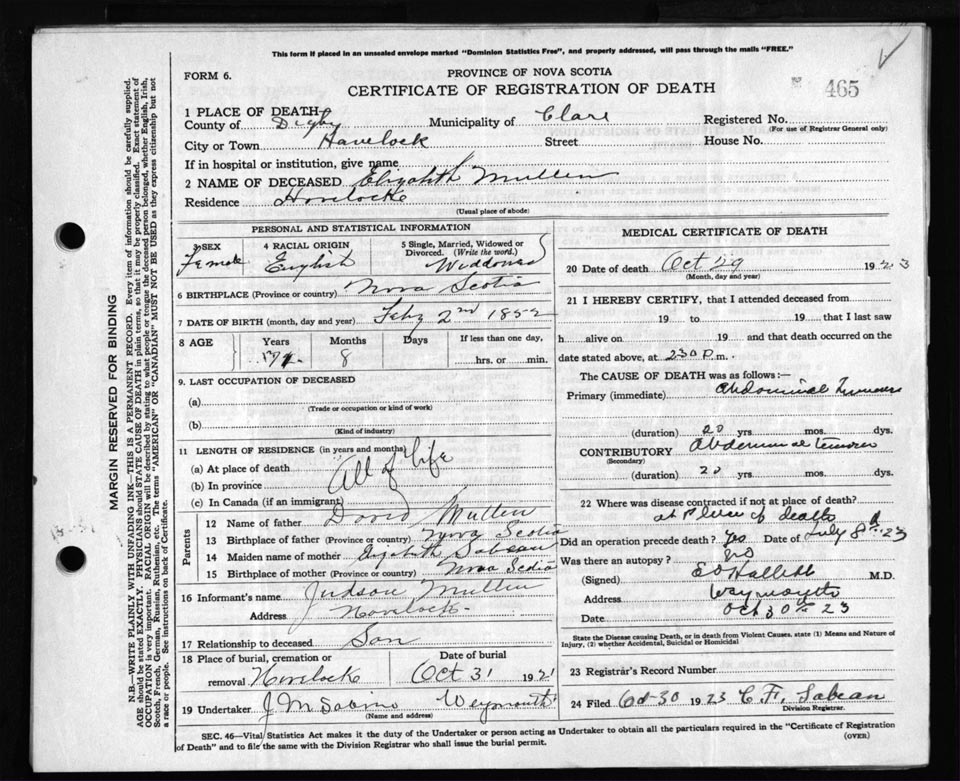 This form if placed in an unsealed envelope marked "Dominion Statistics Free", and properly addressed, will pass through the mails "FREE."
FORM 6.
PROVINCE OF NOVA SCOTIA
CERTIFICATE OF REGISTRATION OF DEATH
465
1 PLACE OF DEATH
County of Digby Municipality of Clare Registered No.
(For use of Registrar General only)
City or Town Havelock Street House No.
If in hospital or institution, give name
2 NAME OF DECEASED Elizabeth Mullen
Residence Havelock
(Usual place of abode)
PERSONAL AND STATISTICAL INFORMATION
3 SEX 4 RACIAL ORIGIN 5 Single, Married, Widowed or Divorced. (Write the word.)
Female English Widdowed
6 BIRTHPLACE (Province or country) Nova Scotia
7 DATE OF BIRTH (month, day and year) Feby 2nd 1852
8 AGE Years Months Days If less than one day,
71 8 hrs. or min.
9. LAST OCCUPATION OF DECEASED
(a)
(Trade or occupation or kind of work)
(b)
(Kind of industry)
11 LENGTH OF RESIDENCE (in years and months)
(a) At place of death All of life
(b) In province
(c) In Canada (if an immigrant)
Parents
12 Name of father David Mullen
13 Birthplace of father (Province or country) Nova Scotia
14 Maiden name of mother Elizabeth Sabean
15 Birthplace of mother (Province or country) Nova Scotia
16 Informant's name Judson Mullen
Address Havelock
17 Relationship to deceased Son
18 Place of burial, cremation or removal Havelock Date of burial Oct 31 192
19 Undertaker J M Sabine Weymouth
(Name and address)
MEDICAL CERTIFICATE OF DEATH
20 Date of death Oct 29 1923
(Month, day and year)
21 I HEREBY CERTIFY, that I attended deceased from
19 to 19 that I last saw
h alive on 19 and that death occurred on the
date stated above, at 230 P.m.
The CAUSE OF DEATH was as follows:—
Primary (immediate) abdominal
(duration) 20 yrs. mos. dys.
CONTRIBUTORY
(Secondary)
(duration) 20 yrs. mos. dys.
22 Where was disease contracted if not at place of death?
at Place of death
Did an operation precede death? yes Date of July 8th 23
Was there an autopsy? no
(Signed) E O Hallett M.D.
Address Weymouth
Date Oct 30th 23
State the Disease causing Death, or in death from Violent Causes, state (1) Means and Nature of Injury, (2) whether Accidental, Suicidal or Homicidal
23 Registrar's Record Number
24 Filed Oct 30 1923 C. F. Sabean
Division Registrar.
SEC. 46—Vital Statistics Act makes it the duty of the Undertaker or person acting as Undertaker to obtain all the particulars required in the "Certificate of Registration
of Death" and to file the same with the Division Registrar who shall issue the burial permit.
(OVER)
MARGIN RESERVED FOR BINDING
N.B.—WRITE PLAINLY WITH UNFADING INK—THIS IS A PERMANENT RECORD. Every item of information should be carefully supplied.
AGE should be stated EXACTLY. PHYSICIANS should STATE CAUSE OF DEATH in plain terms, so that it may be properly classified. Exact statement of
OCCUPATION is very important. RACIAL ORIGIN will be described by stating to what people or tongue the deceased person belonged, whether English, Irish,
Scotch, French, German, Russian, Ruthenian, etc. The terms "AMERICAN" OR "CANADIAN" MUST NOT BE USED as they express citizenship but not
a race or people. See instructions on back of Certificate.